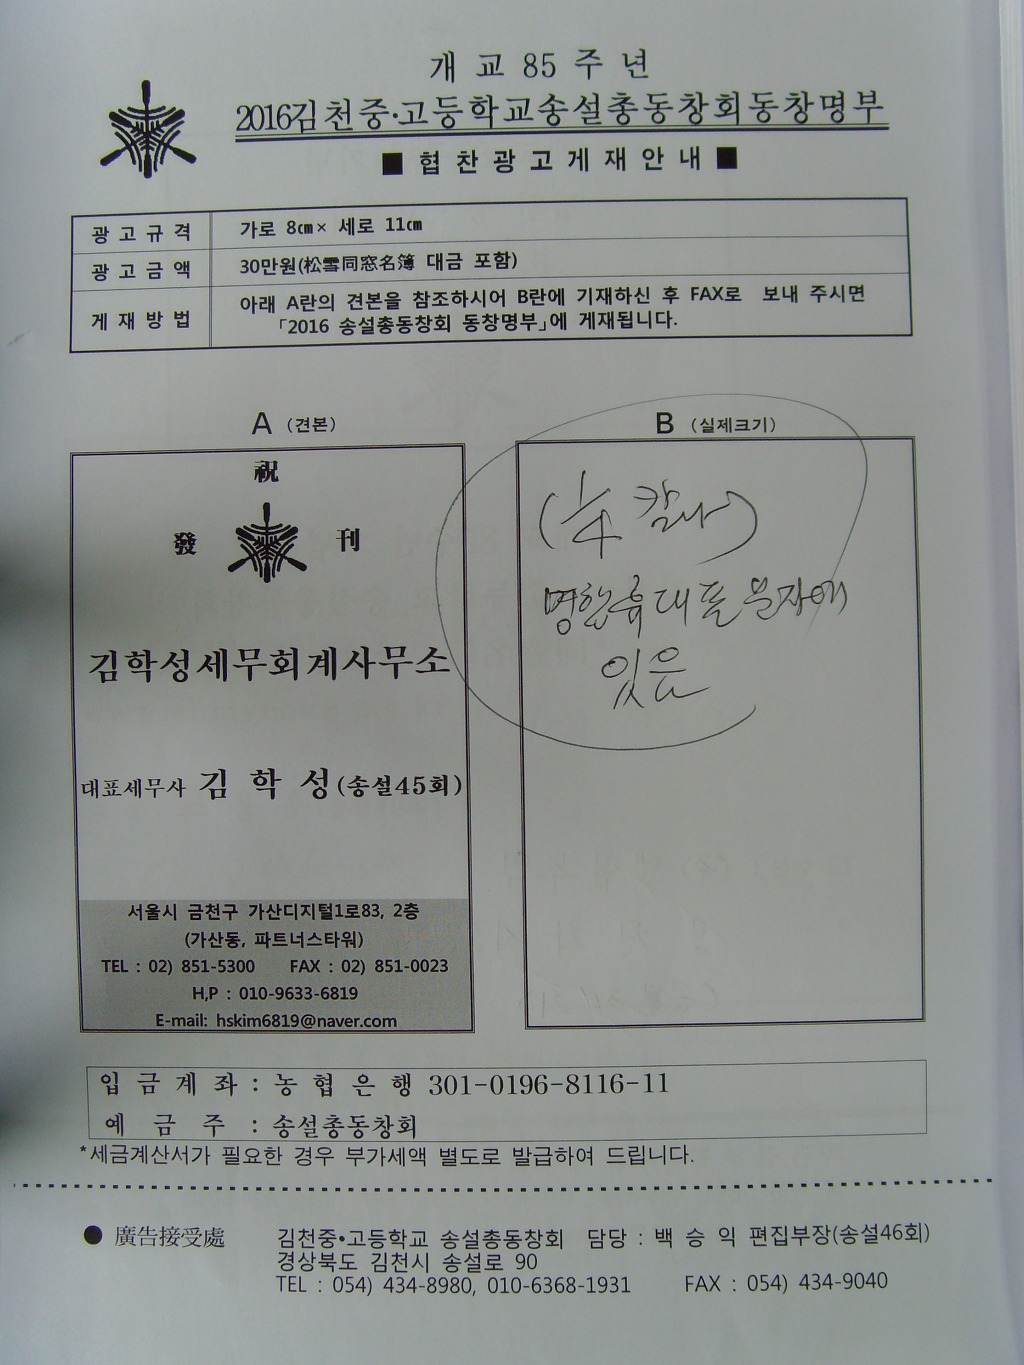 개 교 85 주 년
2016김천중·고등학교송설총동창회동창명부
■ 협 찬 광 고 게 재 안 내 ■
광 고 규 격 가로 8㎝× 세로 11㎝
광 고 금 액 30만원(松雪同窓名簿 대금 포함)
게 재 방 법 아래 A란의 견본을 참조하시어 B란에 기재하신 후 FAX로 보내 주시면
「2016 송설총동창회 동창명부」에 게재됩니다.
A (견본)
祝
發 刊
김학성세무회계사무소
대표세무사 김 학 성(송설45회)
서울시 금천구 가산디지털1로83, 2층
(가산동, 파트너스타워)
TEL : 02) 851-5300 FAX : 02) 851-0023
H,P : 010-9633-6819
E-mail: hskim6819@naver.com
B (실제크기)
명함휴대폰문자에
있음
입 금 계 좌 : 농 협 은 행 301-0196-8116-11
예 금 주 : 송설총동창회
*세금계산서가 필요한 경우 부가세액 별도로 발급하여 드립니다.
● 廣告接受處 김천중•고등학교 송설총동창회 담당 : 백 승 익 편집부장(송설46회)
경상북도 김천시 송설로 90
TEL : 054) 434-8980, 010-6368-1931 FAX : 054) 434-9040